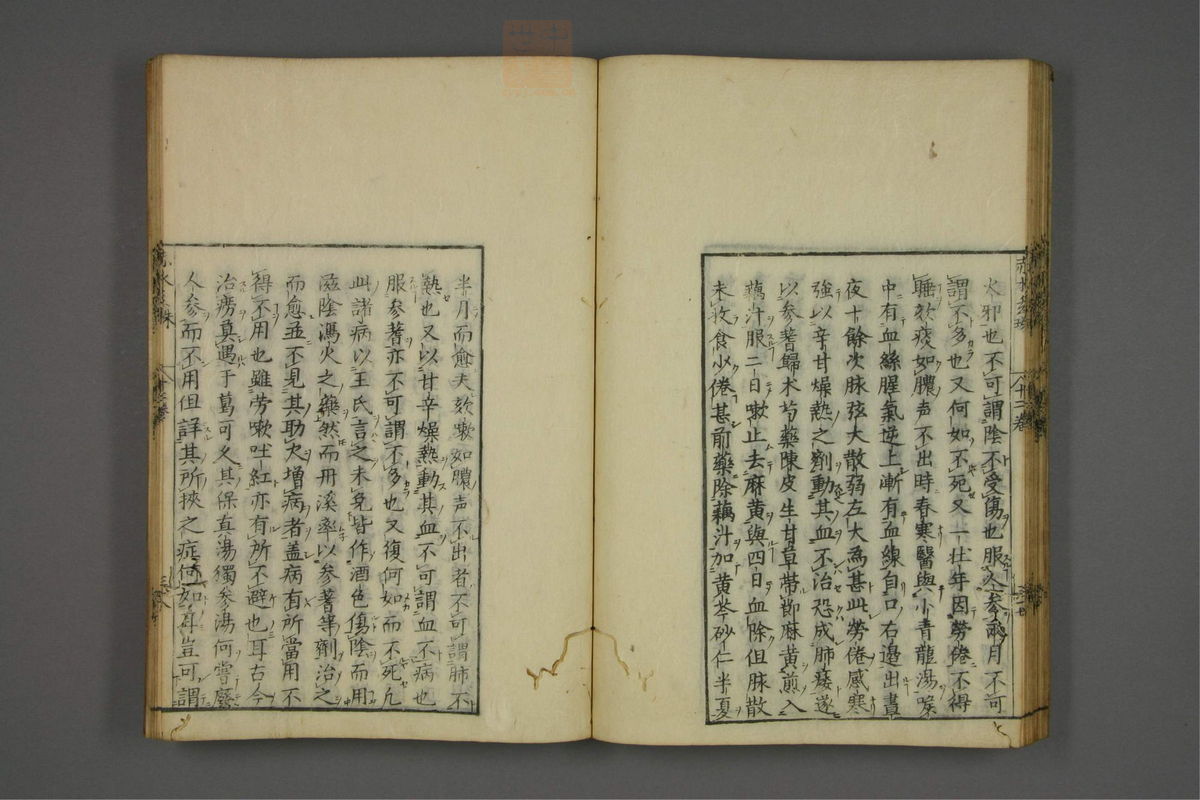 火邪也不可謂陰不受傷也服人參兩月不可
謂不多也又何如不死又一壯年因勞倦不得
睡欬痰如膿声不出時春寒醫與小青龍湯喉
中有血絲腥氣逆上漸有血線自口右邉出晝
夜十餘次脉弦大散弱左大為甚此勞倦感寒
強以辛甘燥熱之劑動其血不治恐成肺痿遂
以參蓍歸术芍藥陳皮生甘草帶節麻黄煎入
藕汁服二日嗽止去麻黄與四日血除但脉散
未收食少倦甚前藥除藕汁加黄芩砂仁半夏
半月而愈夫欬嗽如膿声不出者不可謂肺不
熱也又以甘辛燥熱動其血不可謂血不病也
服參蓍亦不可謂不多也又復何如而不死凢
此諸病以王氏言之未免皆作酒色傷陰而用
滋陰瀉火之藥然而丹溪率以參蓍等劑治之
而愈並不見其助火増病者盖病有所當用不
得不用也雖劳嗽吐紅亦有所不避也耳古今
治癆莫過于葛可久其保真湯獨參湯何嘗廢
人參而不用但詳其所挾之症何如耳豈可謂